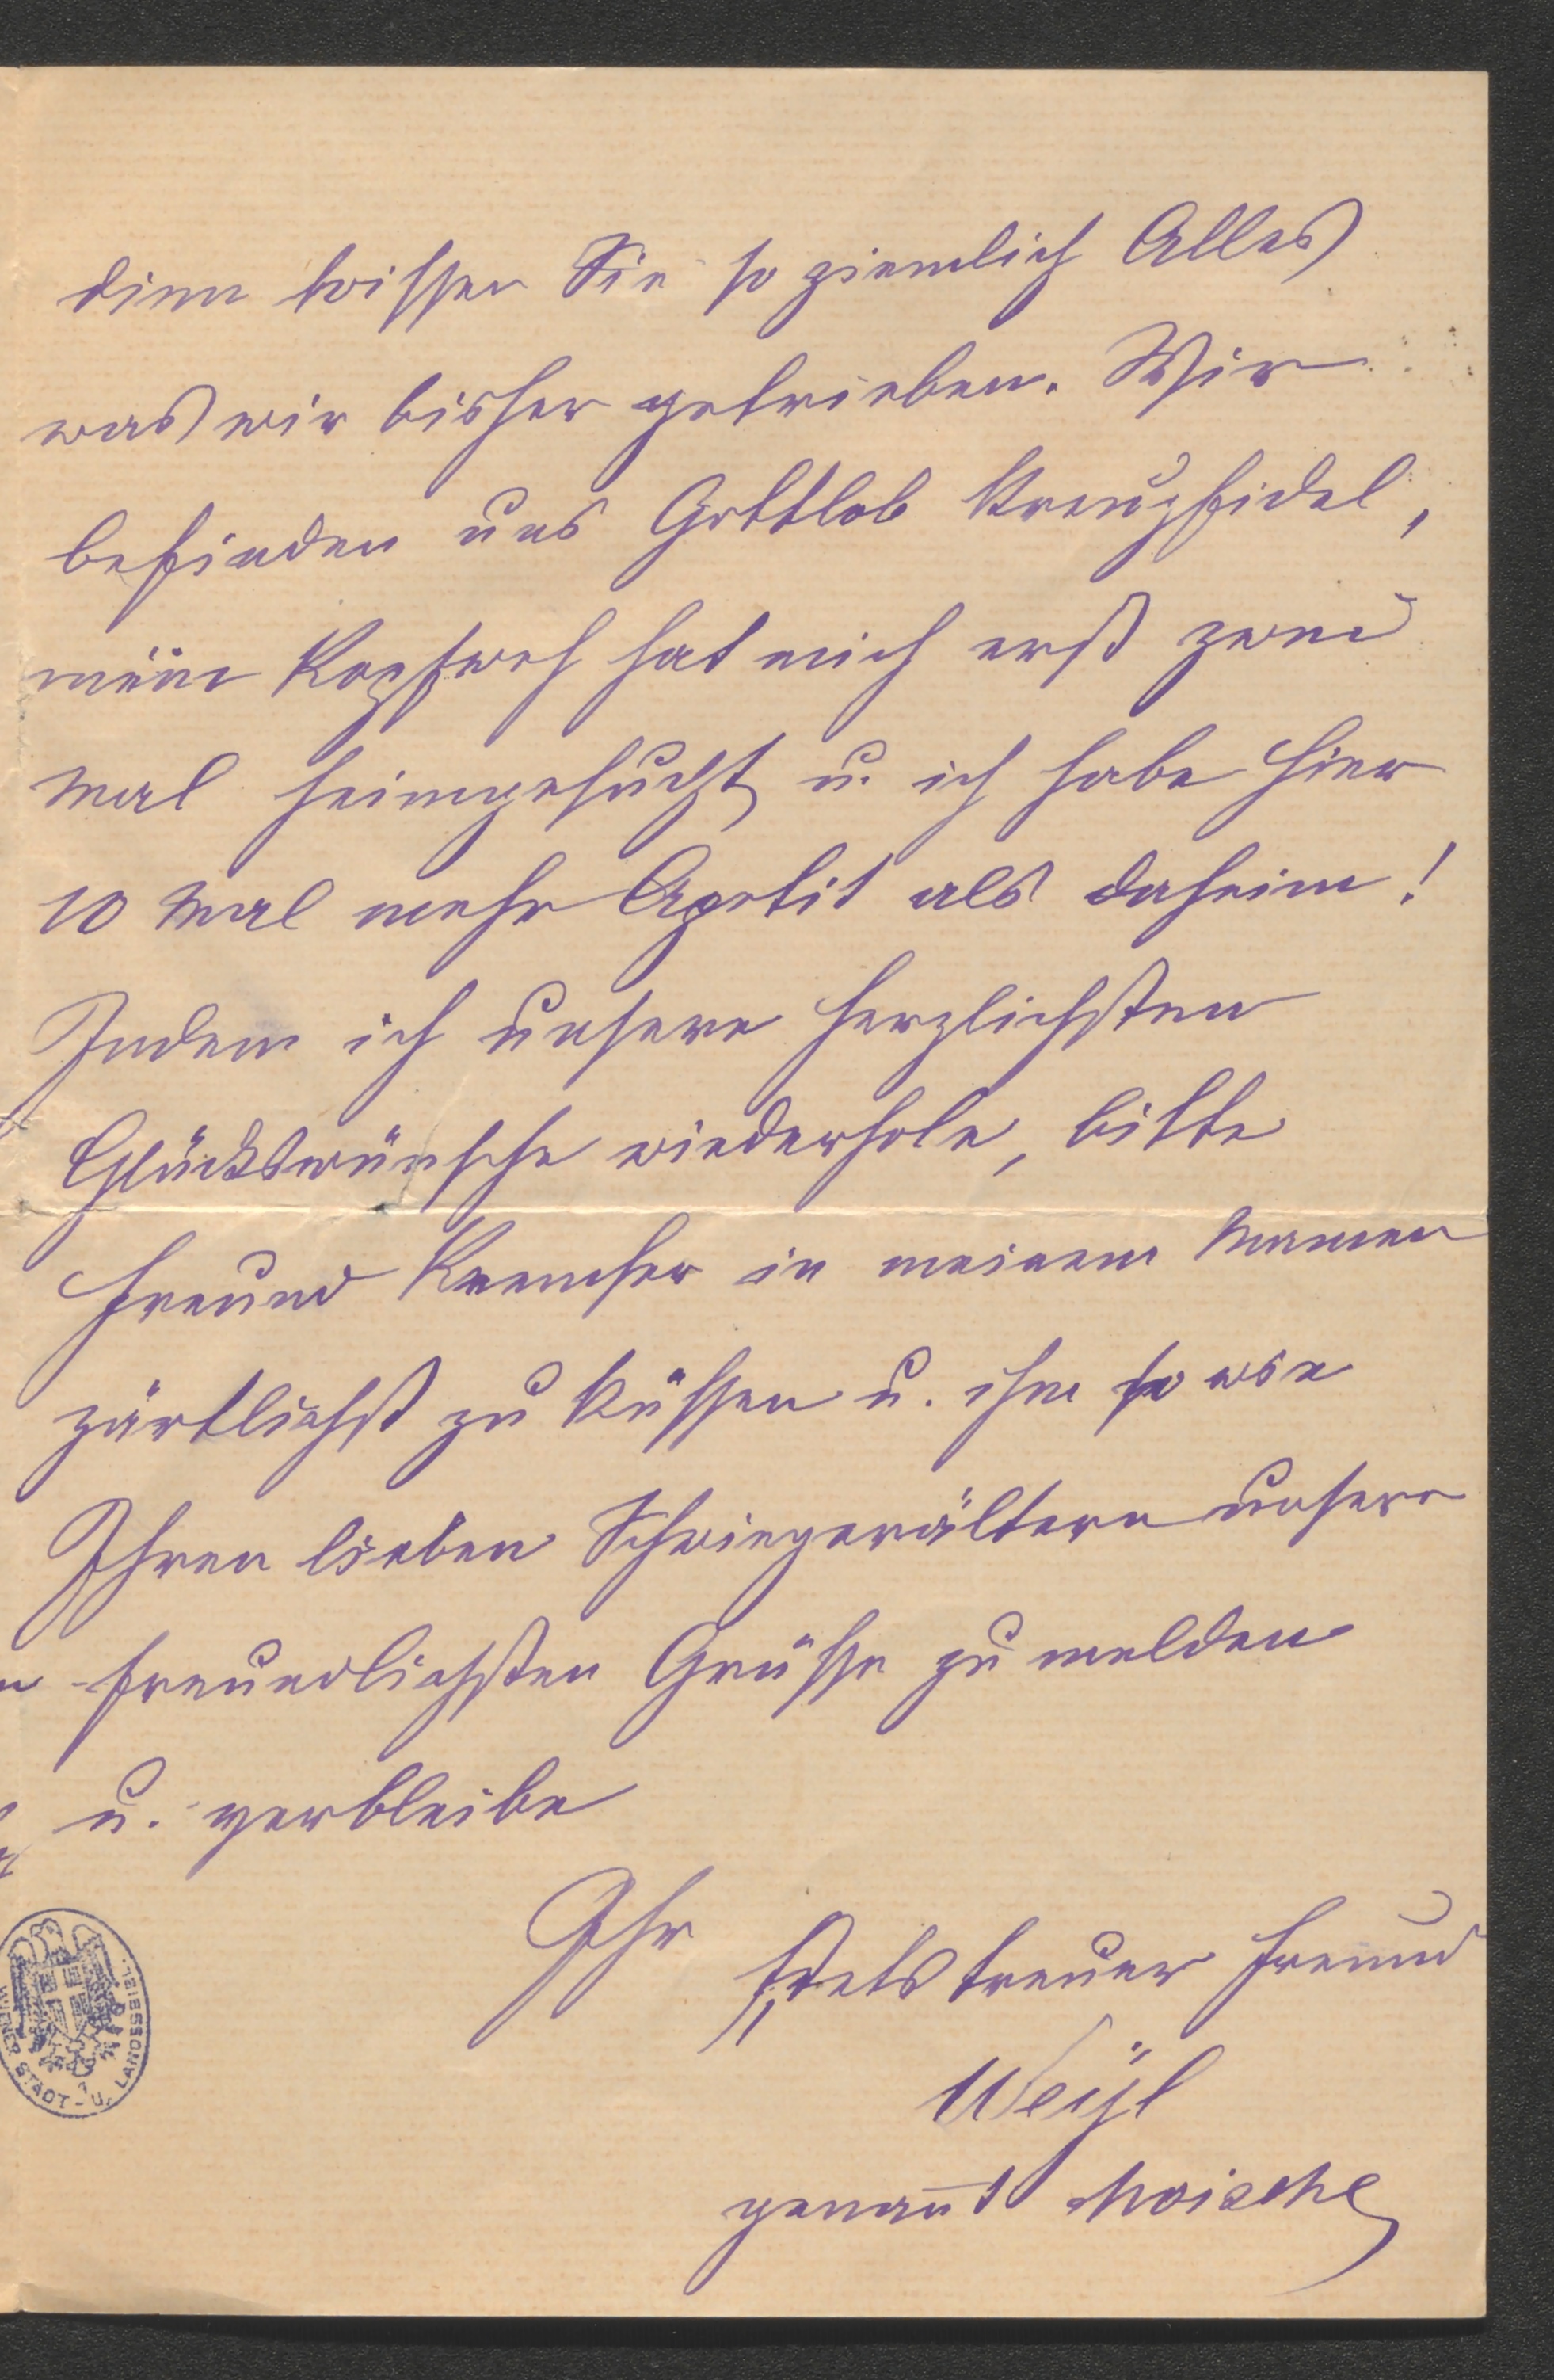 dinn wissen Sie so ziemlich Alles
was wir bisher getrieben. Wir
befinden uns Gottlob kreuzfidel,
mein Kopfweh hat mich erst zwei
Mal heimgesucht u. ich habe hier
10 Mal mehr Apetit als daheim!
Indem ich unsere herzlichsten
Glückswünsche wiederhole, bitte
Freund Kremser in meinem Namen
zärtlichst zu küssen u. ihm so wie
Ihren lieben Schwiegerältern unsere
freundlichsten Grüsse zu melden
u. verbleibe
Ihr stets treuer Freund
Weyl
genan̄t Moische
STADT- U. LANDESBIBL.